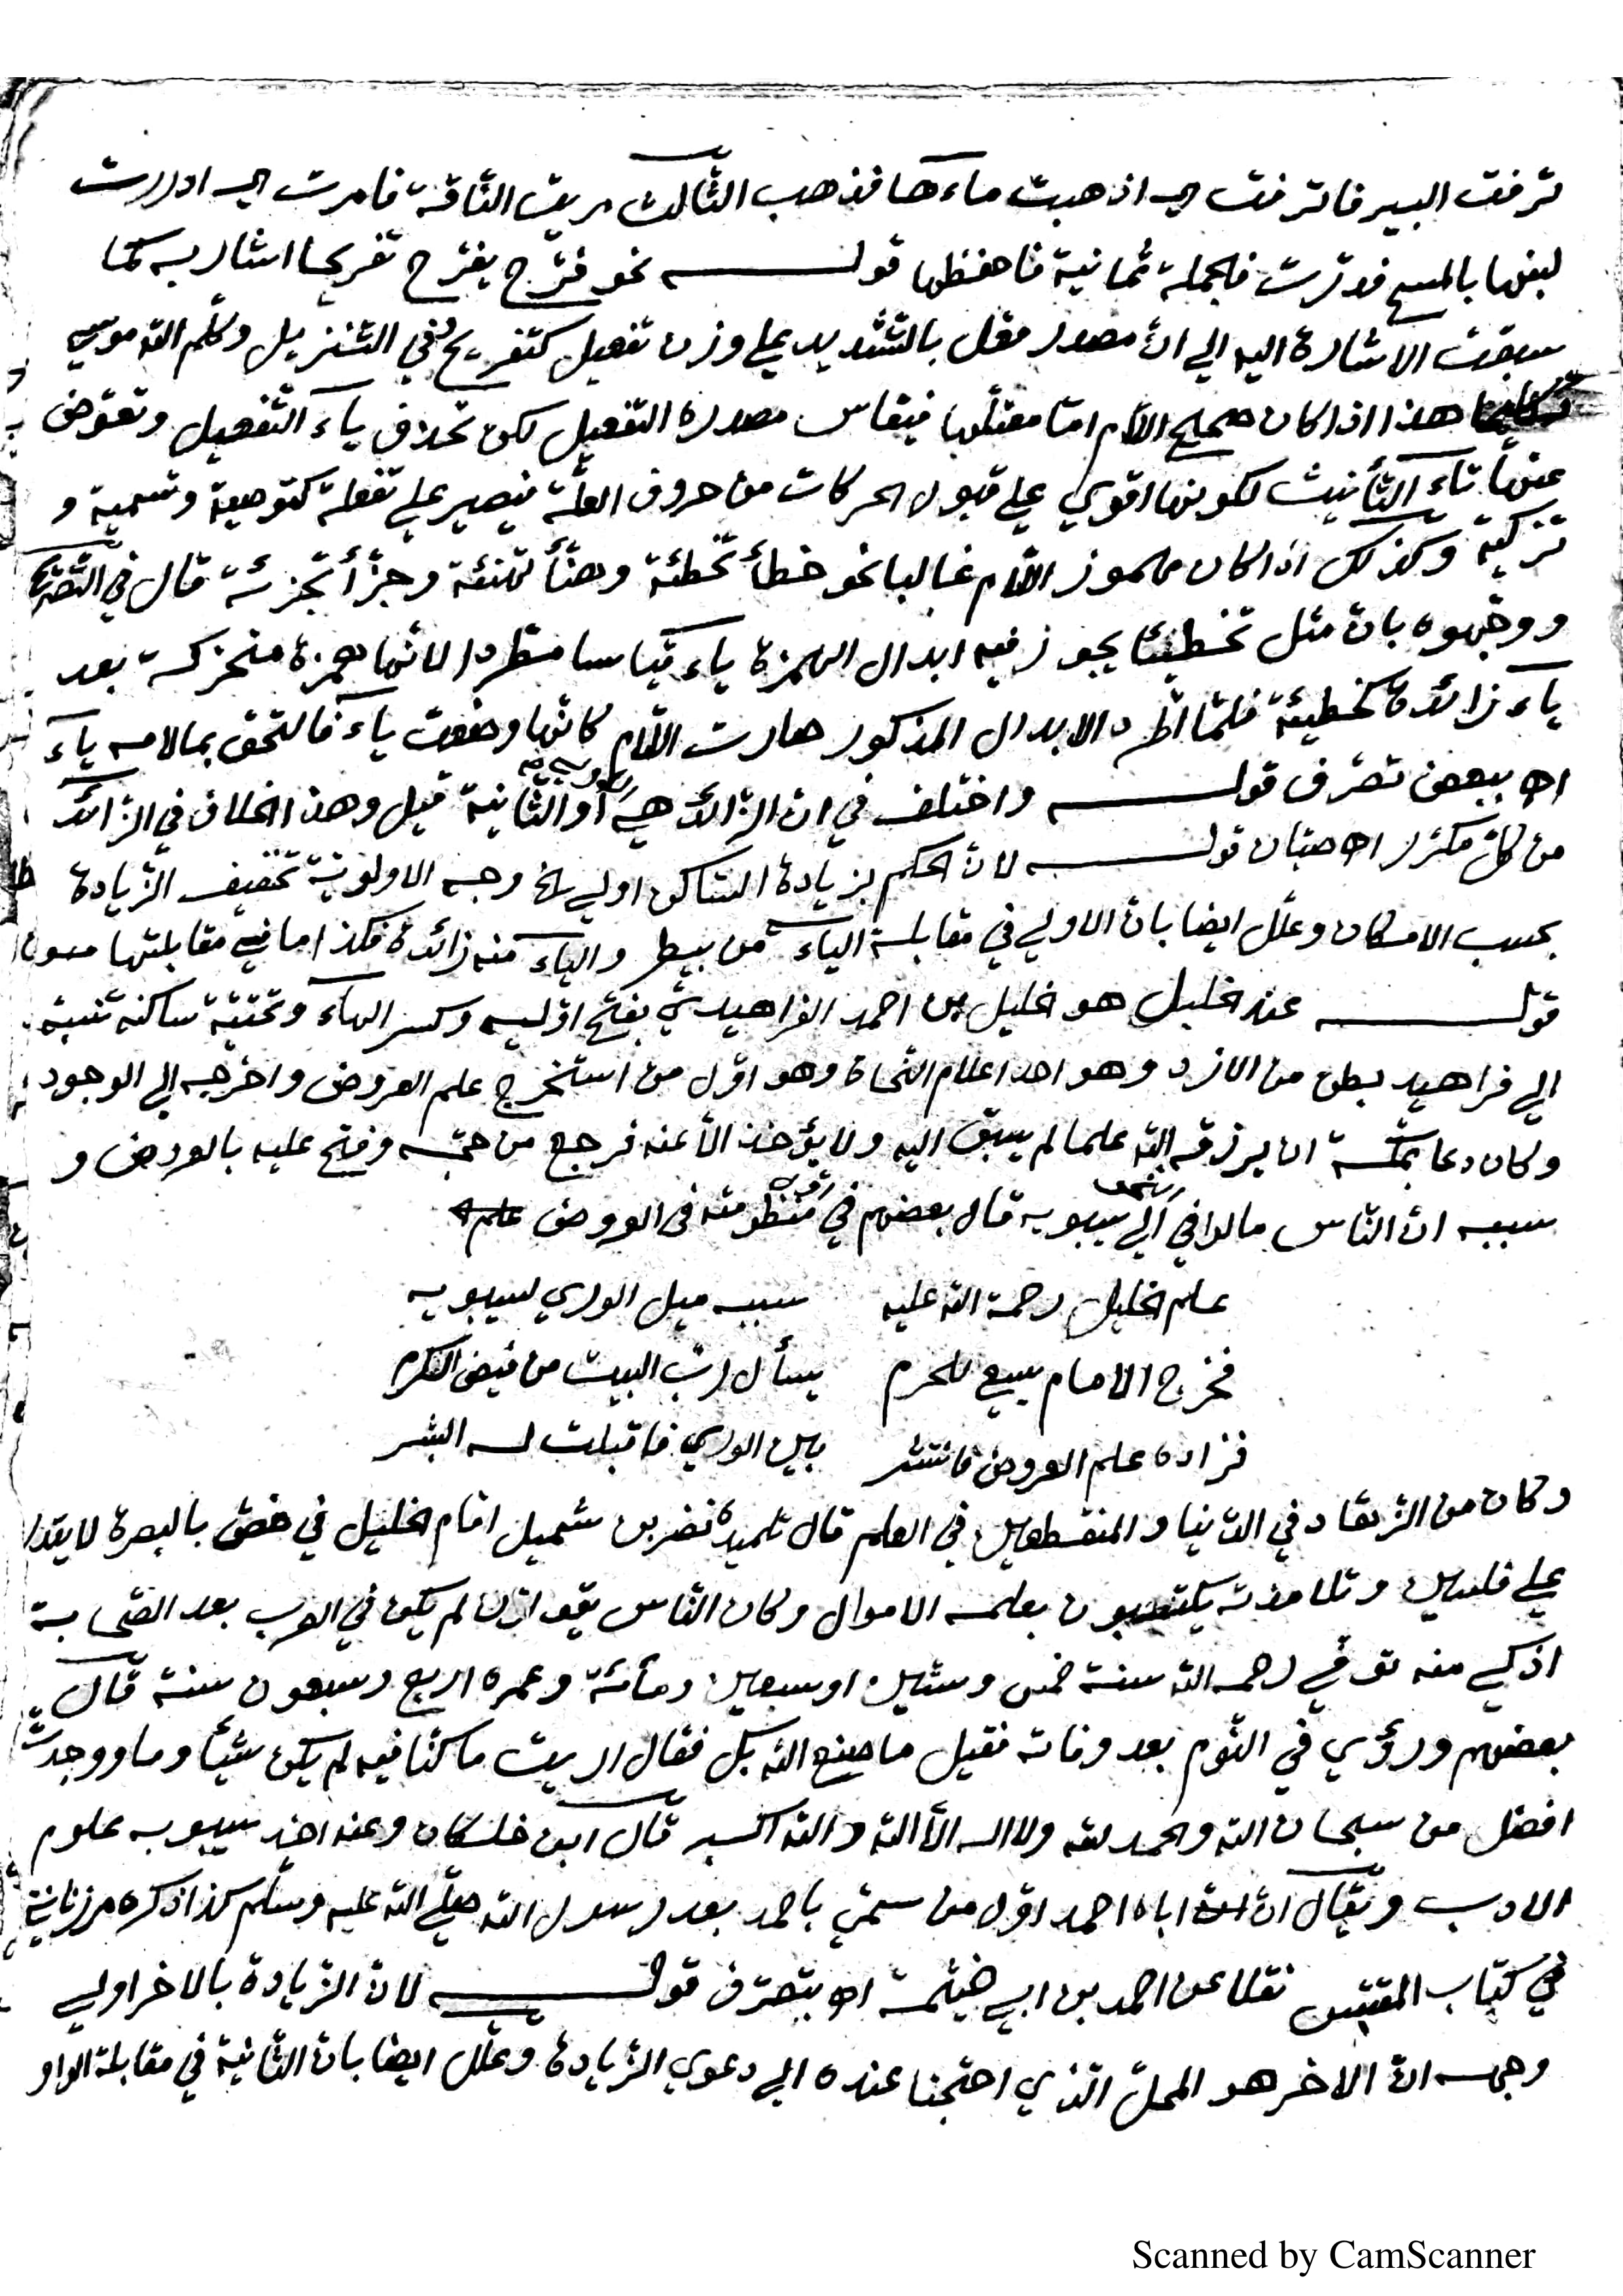 ترفت البير فاترفت اي اذهبت ماءها فذهب الثالث مريت الناقة فامرت اي ادررت
لبنها بالمسح فدرّت فالجملة ثمانية فاحفظها قوله نحو فرّح يفرّح تفريحا اشار به كما
سبقت الاشارة اليه الي انّ مصدر فعّل بالتشديد علي وزن تفعيل كتفريح وفي التنزيل وكلّم الله موسي
تكليما هذا اذا كان صحيح اللام امّا معتلّها فيقاس مصدره التفعيل لكن تحذف ياء التفعيل وتعوّض
عنها تاء التأنيث لكونها اقوي علي قبول الحركات من حروف العلّة فيصير علي تفعلة كتوصية وتسمية و
تزكية وكذلك اذا كان مهموز اللام غالبا نحو خطّأ تخطئة وهنّأ تهنئة وجزّأ تجزئة قال في التصريح
ووجّهوه بانّ مثل تخطيئا يجوز فيه ابدال الهمزة ياء قياسا مطّردا لانّها همزة متحركة بعد
ياء زائدة كخطيئة فلمّا اطّرد الابدال المذكور صارت اللام كانّها وضعت ياء فالتحق بما لامه ياء
اه ببعض تصرّف قوله واختلف في ان الزائد هي أو الثانية قيل وهذا الخلاف في الزائد
من كلّ مكرّر اه صبان قوله لانّ الحكم بزيادة الساكن اولي الخ وجه الاولوية تخفيف الزيادة
بحسب الامكان وعلّل ايضا بانّ الاولي في مقابلة الياء من بيطر والياء منه زائدة فكذا ما في مقابلتها
قوله عند الخليل هو الخليل بن احمد الفراهيديّ بفتح اوّليه وكسر الهاء وتحتيّة ساكنة نسبة
الي فراهيد بطن من الازد وهو احد اعلام النّحاة وهو اوّل من استخرج علم العروض واخرجه الي الوجود
وكان دعا بمكّة ان يرزقه الله علما لم يسبق اليه ولا يؤخذ الّا عنه فرجع من حجّه وفتح عليه بالعروض و
سببه انّ النّاس مالوا في الي سيبويه قال بعضهم في منظومته في العروض
علم الخليل رحمة الله عليه سببه ميل الوري لسيبويه
فخرج الامام يسعي للحرم يسأل ربّ البيت من فيض الكرم
فزاده علم العروض فانتشر بين الوري فاقبلت له البشر
وكان من الزهّاد في الدّنيا والمنقطعين في العلم قال تلميذه نضر بن شميل اقام الخليل في خصّ بالبصرة لا يقدر
علي فلسين وتلامذته يكتسبون بعلمه الاموال وكان النّاس يقولون لم يكن في العرب بعد الصّحابة
اذكي منه توفّي رحمه الله سنة خمس وستّين او سبعين ومائة وعمره اربع وسبعون سنة قال
بعضهم ورؤي في النّوم بعد وفاته فقيل ما صنع الله بك فقال ارايت ما كنّا فيه لم يكن شيئا وما ووجدت
افضل من سبحان الله والحمد لله ولا اله الّا الله والله اكبر قال ابن خلكان وعنه اخذ سيبويه علوم
الادب ويقال انّ اباه احمد اوّل من سمّي باحمد بعد رسول الله صلّي الله عليه وسلّم كذا ذكره مرزبانية
في كتاب المقتبس نقلا عن احمد بن ابي خيثمة اه بتصرّف قوله لانّ الزيادة بالاخر اولي
وجهه انّ الاخر هو المحلّ الّذي احتجنا عنده الي دعوي الزيادة وعلّل ايضا بانّ الثانية في مقابلة الواو
Scanned by CamScanner